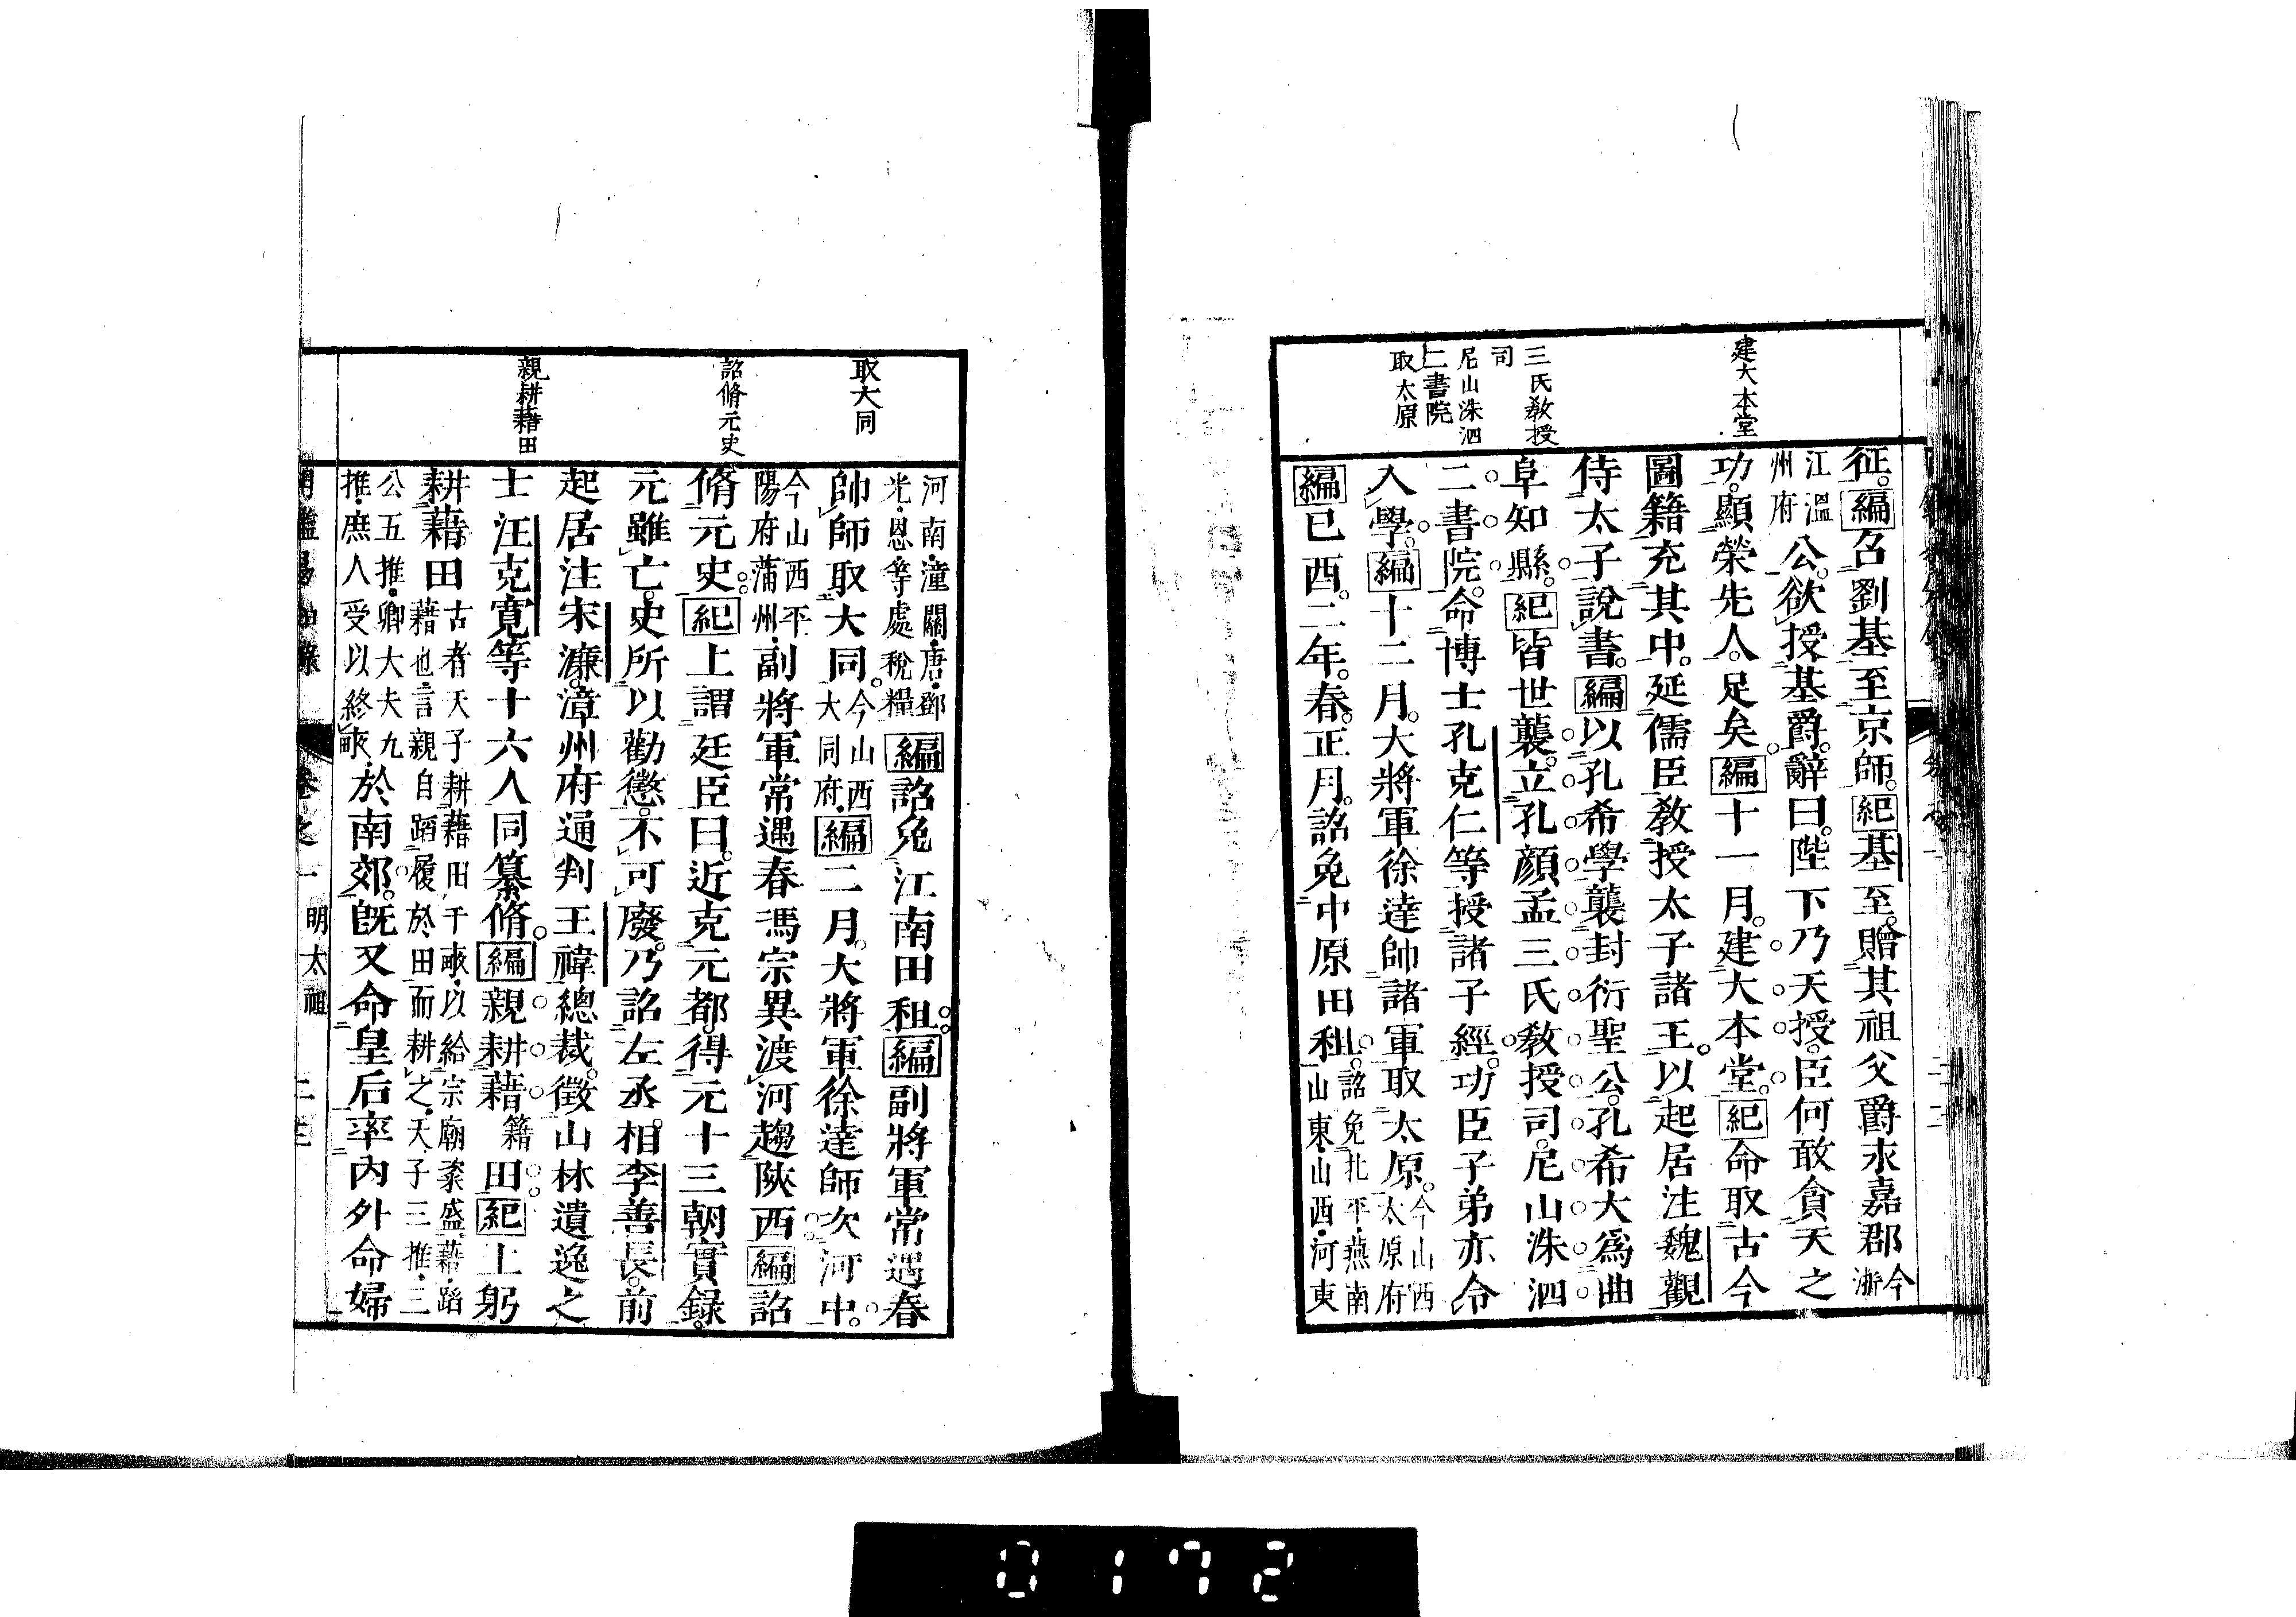 建大本堂
三氏教授
司
尼山洙泗
二書院
取太原
征。編召劉基至京師。紀基至。贈其祖父爵永嘉郡今浙
江溫州府公。欲授基爵。辭曰。陛下乃天授。臣何敢貪天之
功。顯榮先人。足矣。編十一月。建大本堂。紀命取古今
圖籍充其中。延儒臣教授太子諸王。以起居注魏觀
侍太子說書。編以孔希學襲封衍聖公。孔希大爲曲
阜知縣。紀皆世襲。立孔顏孟三氏教授司。尼山洙泗
二書院。命博士孔克仁等授諸子經。功臣子弟亦令
入學。編十二月。大將軍徐達帥諸軍取太原。今山西太原府
編已酉。二年。春。正月。詔免中原田租。詔免北平燕南山東山西河東
取大同
詔脩元史
親耕藉田
河南潼關唐鄧光息等處稅糧編詔免江南田租。編副將軍常遇春
帥師取大同。今山西大同府編二月。大將軍徐達師次河中。
今山西平陽府蒲州副將軍常遇春馮宗異渡河趨陝西編詔
脩元史。紀上謂廷臣曰。近克元都。得元十三朝實録。
元雖亡。史所以勸懲。不可廢。乃詔左丞相李善長。前
起居注宋濂。漳州府通判王褘總裁。徵山林遺逸之
士汪克寬等十六人同纂脩。編親耕藉籍田。紀上躬
耕藉田古者天子耕藉田千畝以給宗廟粢盛藉蹈藉也言親自蹈履於田而耕之天子三推三
公五推卿大夫九推庶人受以終畝於南郊。既又命皇后率內外命婦
卷之一 明太祖